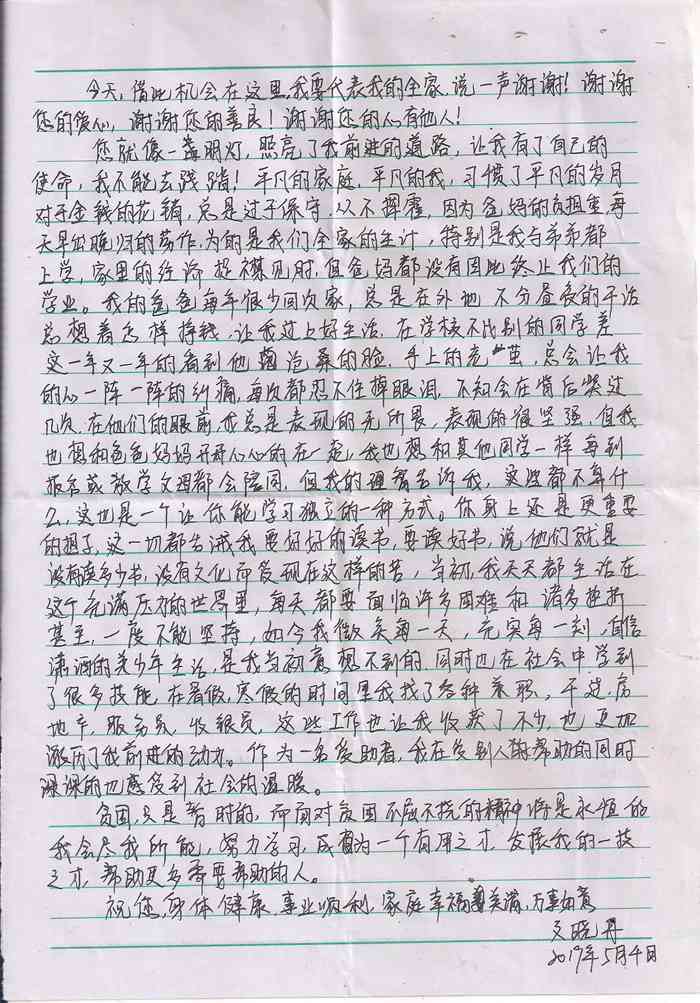 今天,借此机会在这里,我要代表我的全家,说一声谢谢!谢谢
您的爱心,谢谢您的善良!谢谢您的心有他人!
您就像一盏明灯,照亮了我前进的道路,让我有了自己的
使命,我不能去践踏!平凡的家庭,平凡的我,习惯了平凡的岁月
对于金钱的花销,总是过于保守,从不挥霍,因为爸妈的负担重,每
天早出晚归的劳作,为的是我们全家的生计,特别是我与弟弟都
上学,家里的经济捉襟见肘,但爸妈都没有因此终止我们的
学业。我的爸爸每年很少回次家,总是在外地不分昼夜的干活
总想着怎样挣钱,让我过上好生活,在学校不比别的同学差
这一年又一年的看到他沧桑的脸,手上的老茧,总会让我
的心一阵一阵的绞痛,每次都忍不住掉眼泪,不知会在背后哭过
几次,在他们的眼前,我总是表现的无所畏,表现的很坚强,但我
也想和爸爸妈妈开开心心的在一起,我也想和其他同学一样每到
报名或放学父母都会陪同,但我的理智告诉我,这些都不算什
么,这也是一个让你能学习独立的一种方式。你身上还是更重要
的担子,这一切都告诫我要好好的读书,要读好书,说他们就是
没有读多少书,没有文化而受现在这样的苦,当初,我天天都生活在
这个充满压力的世界里,每天都要面临许多困难和诸多挫折
甚至,一度不能坚持,如今我微笑每一天,充实每一刻,自信
潇洒的美少年生活,是我当初意想不到的,同时也在社会中学到
了很多技能,在暑假,寒假的时间里我找了各种兼职,干过,房
地产,服务员,收银员,这些工作也让我收获了不少,也更加
激历了我前进的动力。作为一名受助者,我在受别人帮助的同时
深深的也感受到社会的温暖。
贫困,只是暂时的,而面对贫困不屈不挠的精神将是永恒的
我会尽我所能,努力学习,成为一个有用之才,发挥我的一技
之才,帮助更多需要帮助的人。
祝您,身体健康,事业顺利,家庭幸福美满,万事如意
文晓丹
2019年5月4日